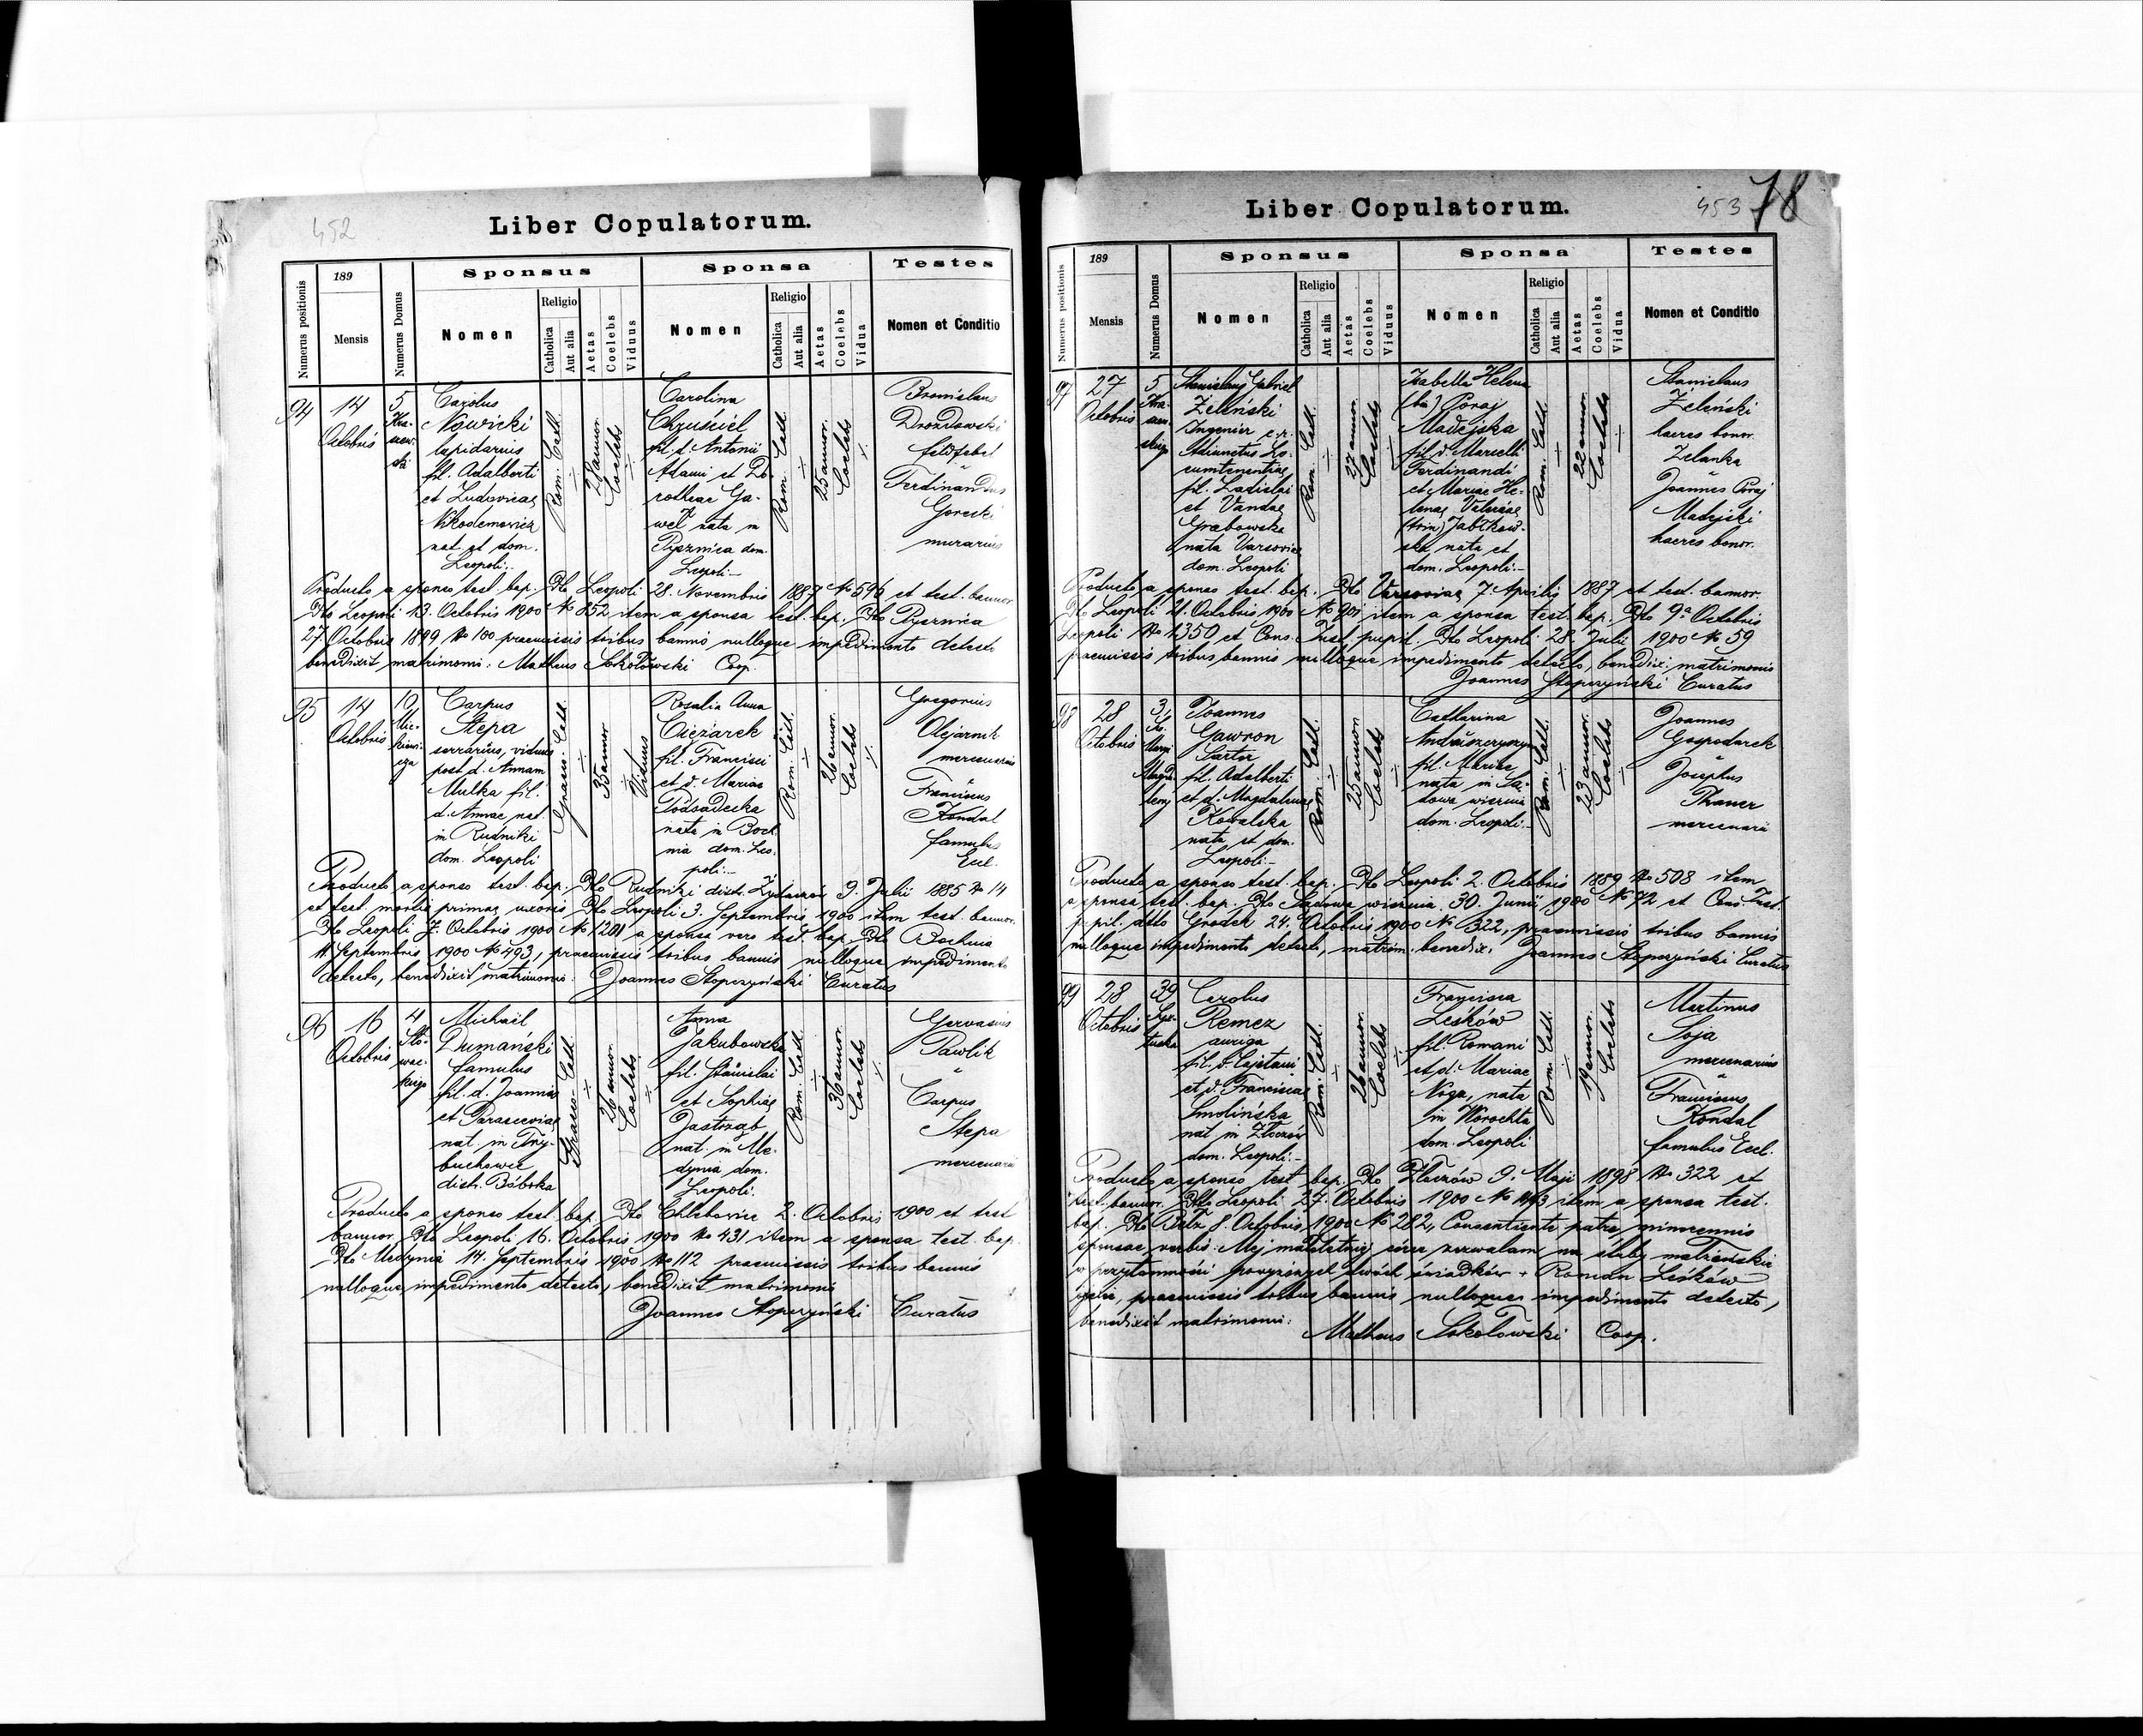 452
Liber Copulatorum.
Numerus positionis
189
Mensis
Numerus Domus
Sponsus
Nomen
Religio
Catholica
Aut alia
Aetas
Coelebs
Viduus
Sponsa
Nomen
Religio
Catholica
Aut alia
Aetas
Coelebs
Vidua
Testes
Nomen et Conditio
94
14
Octobris
5
Carolus
Nowicki
lapidarius
fil. Adalberti
et Ludovicae
Nikodemowicz
nat. et dom.
Leopoli:-
Rom. Cath.
28 annor.
Coelebs
Carolina
Chruściel
fil. d. Antonii
Adami et Do-
rotheae Ga-
wel nata in
Pysznica dom.
Leopoli:-
Rom. Cath.
25 annor.
Coelebs
Bronislaus
Drozdowski
feldfebel
Ferdinandus
Gorecki
murarius
Producto a sponso test. bap. Dto Leopoli 28. Novembris 1887 No 596 et test. bannor.
Dto Leopoli 13. Octobris 1900 No 852 item a sponsa test. bap. Dto Pysznica
27. Octobris 1899 No 100 praemissis tribus bannis nulloque impedimento detecto
benedixit matrimonii: Matheus Sokołowski Coop.
95
14
Octobris
10
Mic-
kiewi-
cza
Carpus
Stepa
serrarius, viduus
post d. Annam
Mulka fil.
d. Annae nat.
in Rudniki
dom. Leopoli
Graeco. Cath.
35 annor
Viduus
Rosalia Anna
Ciężarek
fil. Francisci
et d. Mariae
Podsadecka
nata in Boch-
nia dom. Leo-
poli:-
Rom. Cath.
26 annor.
Coelebs
Gregorius
Olejarnik
mercenarius
Franciscus
Kondal
famulus
Eccl.
Producto a sponso test. bap. Dto Rudniki distr. Żydaczów 9. Julii 1885 No 14
et test. mortis primae uxoris Dto Leopoli 3. Septembris 1900 item test. bannor.
Dto Leopoli 7. Octobris 1900 No 1201 a sponsa vero test. bap. Dto Bochnia
11 Septembris 1900 No 493, praemissis tribus bannis nulloque impedimento
detecto, benedixit matrimonio. Joannes Stopczyński Curatus
96
16
Octobris
4
Sło-
wac-
kiego
Michaël
Dumański
famulus
fil. d. Joannis
et Parasceviae
nat. in Try-
buchowce
distr. Bóbrka
Graeco-Cath.
26 annor.
Coelebs
Anna
Jakubowska
fil. Stanislai
et Sophiae
Jastrząb
nat. in Me-
dynia dom.
Leopoli.
Rom. Cath.
36 annor.
Coelebs
Gervasius
Pawlik
Carpus
Stepa
mercenarii
Producto a sponso test. bap. Dto Chlebowice 2. Octobris 1900 et test
bannor. Dto Leopoli 16. Octobris 1900 No 431 item a sponsa test. bap.
Dto Medynia 14. Septembris 1900 No 112 praemissis tribus bannis
nulloque impedimento detecto, benedixit matrimonio
Joannes Stopczyński Curatus
453
78
Liber Copulatorum.
Numerus positionis
189
Mensis
Numerus Domus
Sponsus
Nomen
Religio
Catholica
Aut alia
Aetas
Coelebs
Viduus
Sponsa
Nomen
Religio
Catholica
Aut alia
Aetas
Coelebs
Vidua
Testes
Nomen et Conditio
97
27
Octobris
5
Stanislaus Gabriel
Zeleński
Ingenier c.r.
Adiunctus Lo-
cumtenentiae
fil. Ladislai
et Vandae
Grabowska
nata Varsoviae
dom. Leopoli
Rom. Cath.
27 annor.
Coelebs
Izabella Helena
(bin) Poraj
Madejska
fil. d. Marcelli
Ferdinandi
et Mariae He-
lenae Valeriae
(trin) Jabłkow-
ska nata et
dom. Leopoli:-
Rom. Cath.
22 annor.
Coelebs
Stanislaus
Zeleński
haeres bonor.
Zelanka
Joannes Poraj
Madejski
haeres bonor.
Producto a sponso test. bap. Dto Varsoviae 7 Aprilis 1887 et test. bannor.
Dto Leopoli 21. Octobris 1900 No 901 item a sponsa test. bap. Dto 9a Octobris
Leopoli No 1350 et Cons. Inst. pupil. Dto Leopoli 28. Julii 1900 No 59
praemissis tribus bannis nulloque impedimento detecto, benedixi matrimonio
Joannes Stopczyński Curatus
98
28
Octobris
3
Joannes
Gawron
Sartor
fil. Adalberti
et d. Magdalenae
Kowalska
nata et dom.
Leopoli:-
Rom. Cath.
25 annor.
Coelebs
Catharina
fil. Mariae
nata in Są-
dowa wisznia
dom. Leopoli:-
Rom. Cath.
23 annor.
Coelebs
Joannes
Gospodarek
Josephus
Thauer
mercenarii
Producto a sponso test. bap. Dto Leopoli 2. Octobris 1889 No 508 item
a sponsa test. bap. Dto Sadowa wisznia 30. Junii 1900 No 72 et Cons Inst.
pupil. dtto Gródek 24. Octobris 1900 No 322, praemissis tribus bannis
nulloque impedimento detecto, matrim. benedixi. Joannes Stopczyński Curatus
99
28
Octobris
39
Syx-
tuska
Carolus
Remez
auriga
fil. d. Cajetani
et d. Franciscae
Smolińska
nat in Złoczów
dom. Leopoli:-
Rom. Cath.
26 annor.
Coelebs
Francisca
Leśków
fil. Romani
et d. Mariae
Noga, nata
in Worochta
dom. Leopoli
Rom. Cath.
19 annor.
Coelebs
Martinus
Soja
mercenarius
Franciscus
Kondal
famulus Eccl.
Producto a sponso test. bap. Dto Złoczów 9. Maji 1898 No 322 et
test. bannor. Dtto Leopoli 27. Octobris 1900 item a sponsa test.
bap. Dto Bełz 8. Octobris 1900 No 282, Consentiente patre, minorennis
sponsae verbis: Mej małoletniej córce zezwalam na śluby małżeńskie
w przytomności powyższych dwóch świadków + Roman Leśków
praemissis tribus bannis nulloque impedimento detecto,
benedixit matrimonii:
Matheus Sokołowski Coop.